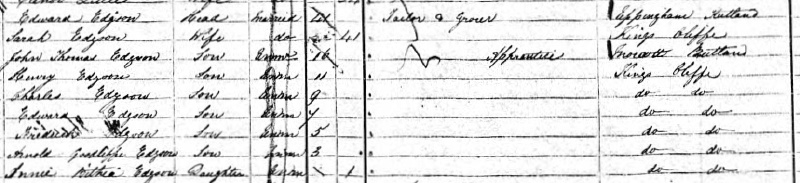 Edward Edgson Head Married 41 Tailor & Grocer Eppingham Rutland
Sarah Edgson Wife do 41 Kings Cliffe
John Thomas Edgson Son Unm 16 Apprentice Rutland
Henry Edgson Son Unm 11 Kings Cliffe
Charles Edgson Son Unm 9 do do
Edward Edgson Son Unm 7 do do
Fredrick Edgson Son Unm 5 do do
Arnold Goodliffe Edgson Son Unm 3 do do
Annie Edgson Daughter Unm 1 do do